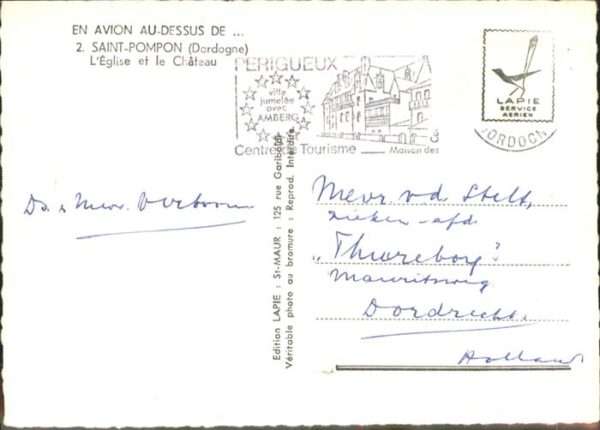 EN AVION AU-DESSUS DE ...
2. SAINT-POMPON (Dordogne)
L'Église et le Château
PERIGUEUX
ville
jumelée
avec
AMBERG
Centre de Tourisme
Maison des
LAPIE
SERVICE
AERIEN
DORDOGN
Ds. & Mevr.
Mevr. v.d. Stelt,
zieken-afd
„Thureborg"
Mauritsweg
Dordrecht.
Holland
Edition LAPIE : St-MAUR : 125 rue Garibaldi
Véritable photo au bromure : Reprod. Interdite.